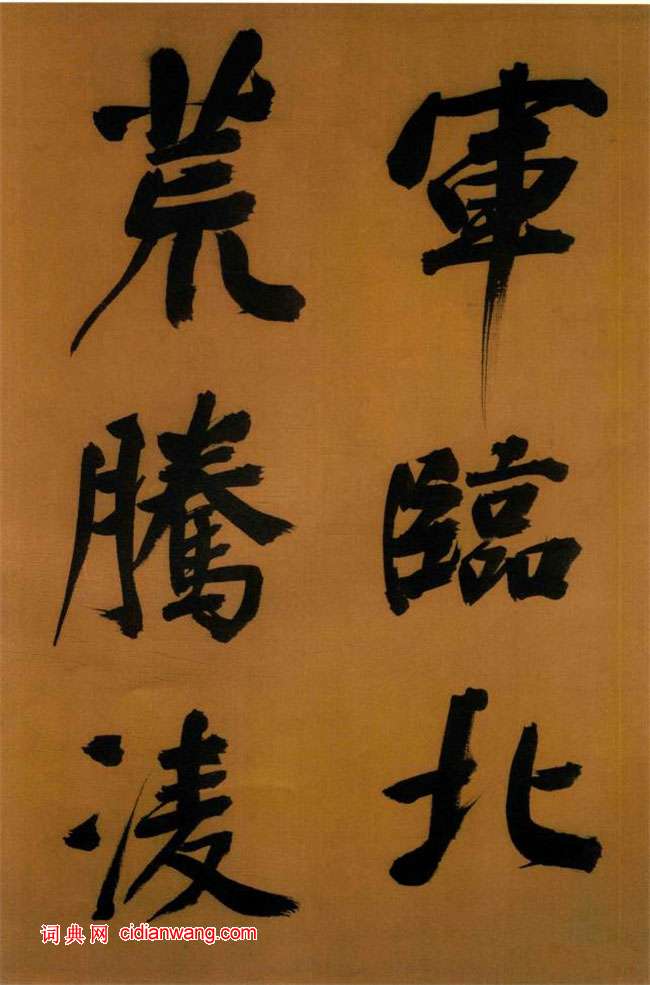 軍臨北
荒騰凌
词典网 cidianwang.com